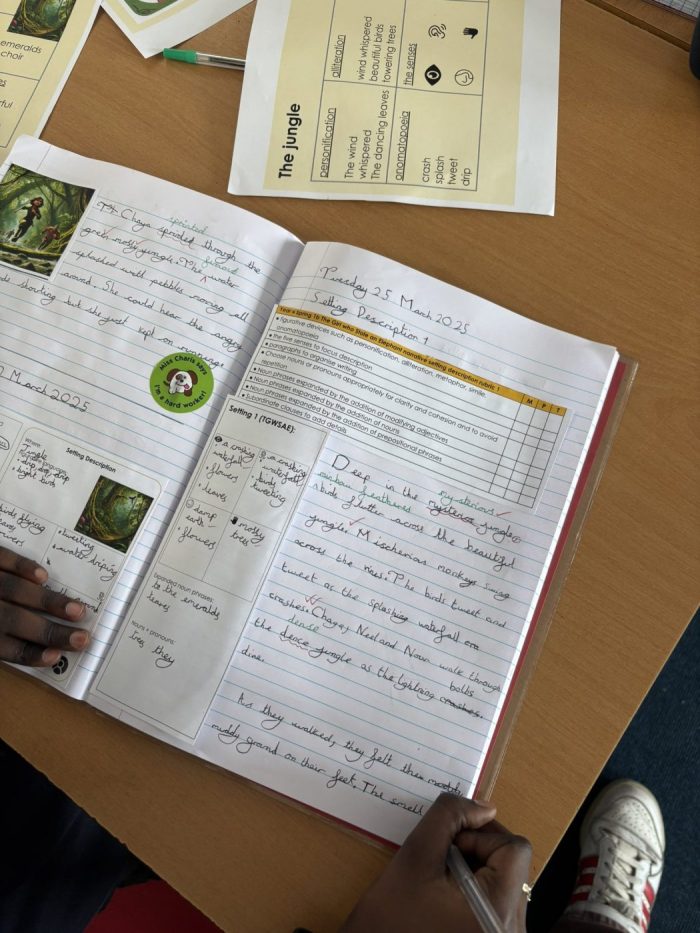 emeralds
choir
The jungle
personification
The wind
whispered
The dancing leaves
alliteration
wind whispered
beautiful birds
towering trees
onomatopoeia
crash
splash
tweet
drip
the senses
sprinted
Chaya sprinted through the
ground
green mossy jungle. The water
splashed wall pebbles moving all
around. She could hear the angry
shouting but she just kept on running.
Miss Charis says
I'm a hard worker!
March 2025
Setting Description
Where:
jungle
drip, drop, drip
bright bird
birds flying
leaves
flowers
tweeting
water driping
Tuesday 25 March 2025
Setting Description 1
Year 4 Spring 1b The Girl who Stole an Elephant narrative setting description rubric 1
M P T
• figurative devices such as personification, alliteration, metaphor, simile,
onomatopoeia
• the five senses to focus description
• paragraphs to organise writing
• Choose nouns or pronouns appropriately for clarity and cohesion and to avoid
repetition
• Noun phrases expanded by the addition of modifying adjectives
• Noun phrases expanded by the addition of nouns
• Noun phrases expanded by the addition of prepositional phrases
• Subordinate clauses to add details
Setting 1 (TGWSAE):
• a crashing
waterfall
• flowers
• leaves
• a crashing
waterfall
• birds
tweeting
• damp
earth
• flowers
• mossy
trees
expanded noun phrases:
to the emeralds
leaves
nouns + pronouns:
trees they
mysterious
Deep in the mysterise jungle
rainbow feathered
birds flutter across the beautiful
jungle. Mischevious monkeys swing
across the vines. The birds tweet and
tweet as the splashing waterfall
crashes. Chaya, Neel and Nour walk through
dense
the dence jungle as the lightning crashes.
bolts
dine.
As they walked, they felt the
muddy grand on their feet. The smell